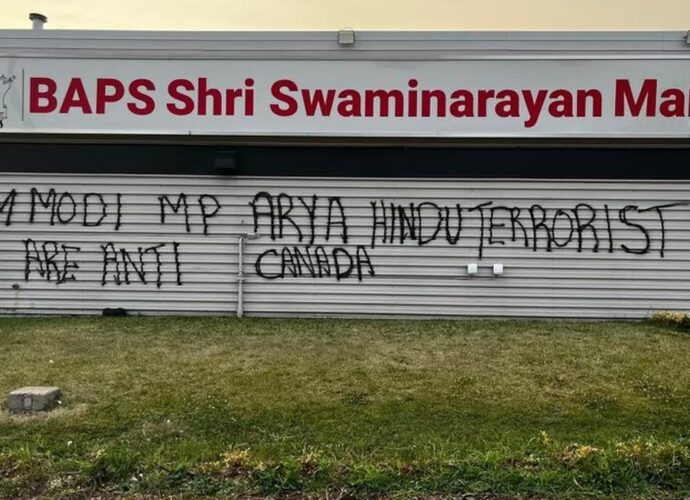 BAPS Shri Swaminarayan Ma
M MODI MP ARYA HINDU TERRORIST
ARE ANTI CANADA